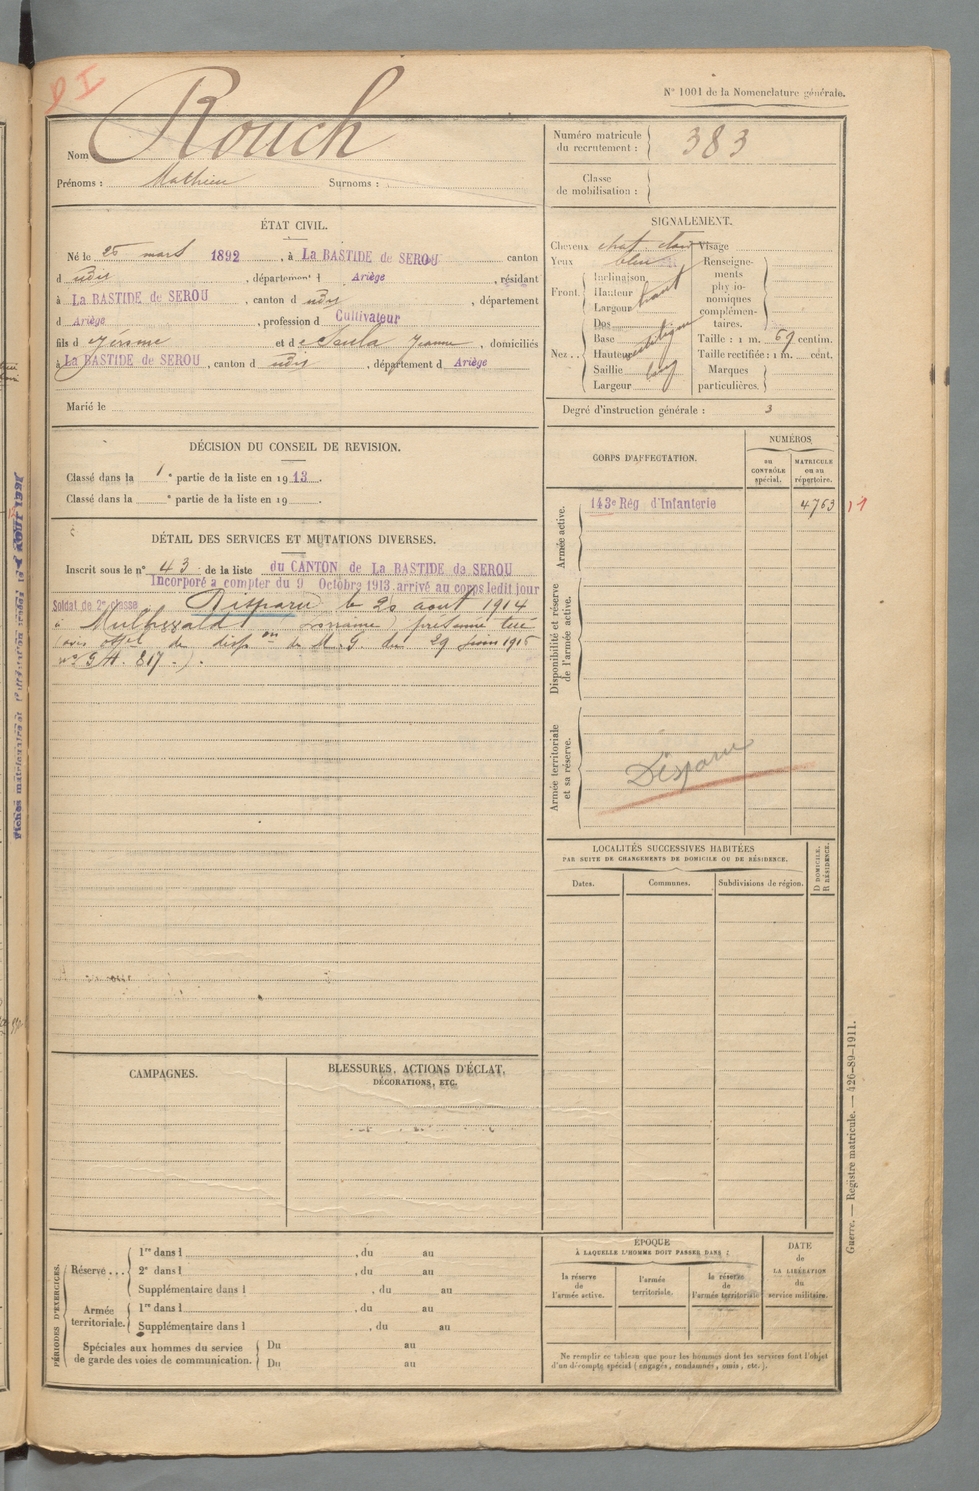 DI
N° 1001 de la Nomenclature générale.
Nom : Rouch
Prénoms : Mathieu Surnoms :
Numéro matricule du recrutement : 383
Classe de mobilisation :
ÉTAT CIVIL.
Né le 25 mars 1892, à La BASTIDE de SEROU canton
d udit, département d Ariège, résidant
à La BASTIDE de SEROU, canton d udit, département
d Ariège, profession d Cultivateur
fils d Jérôme et de Saula Jeanne, domiciliés
à La BASTIDE de SEROU, canton d udit, département d Ariège
Marié le
SIGNALEMENT.
Cheveux chat. clair Visage
Yeux bleu
Front. Inclinaison
Hauteur haut
Largeur
Nez .. Dos
Base
Hauteur
Saillie
Largeur
Renseignements physionomiques complémentaires.
Taille : 1 m. 69 centim.
Taille rectifiée : 1 m. cent.
Marques particulières.
Degré d'instruction générale : 3
DÉCISION DU CONSEIL DE REVISION.
Classé dans la 1e partie de la liste en 1913.
Classé dans la e partie de la liste en 19
CORPS D'AFFECTATION.
NUMÉROS
au CONTRÔLE spécial.
MATRICULE ou au répertoire.
Armée active.
143e Rég d'Infanterie 4763
Disponibilité et réserve de l'armée active.
Armée territoriale et sa réserve.
Disparu
DÉTAIL DES SERVICES ET MUTATIONS DIVERSES.
Inscrit sous le n° 43 de la liste du CANTON de La BASTIDE de SEROU
Incorporé à compter du 9 Octobre 1913 arrivé au corps ledit jour
Soldat de 2e classe Disparu le 20 août 1914
à Mulhwald (Lorraine) présumé tué
(avis offel de dispon du M. G. du 29 juin 1915
n° G H. 817.).
LOCALITÉS SUCCESSIVES HABITÉES
PAR SUITE DE CHANGEMENTS DE DOMICILE OU DE RÉSIDENCE.
Dates. Communes. Subdivisions de région. D DOMICILE. R RÉSIDENCE.
CAMPAGNES.
BLESSURES, ACTIONS D'ÉCLAT, DÉCORATIONS, ETC.
PÉRIODES D'EXERCICES.
Réserve ... 1re dans l , du au
2e dans l , du au
Supplémentaire dans l , du au
Armée territoriale. 1re dans l , du au
Supplémentaire dans l , du au
Spéciales aux hommes du service de garde des voies de communication. Du au
Du au
ÉPOQUE
À LAQUELLE L'HOMME DOIT PASSER DANS :
la réserve de l'armée active.
l'armée territoriale.
la réserve de l'armée territoriale
DATE de LA LIBÉRATION du service militaire.
Ne remplir ce tableau que pour les hommes dont les services font l'objet
d'un décompte spécial (engagés, condamnés, omis, etc.).
Guerre. — Registre matricule. — 426-89-1911.